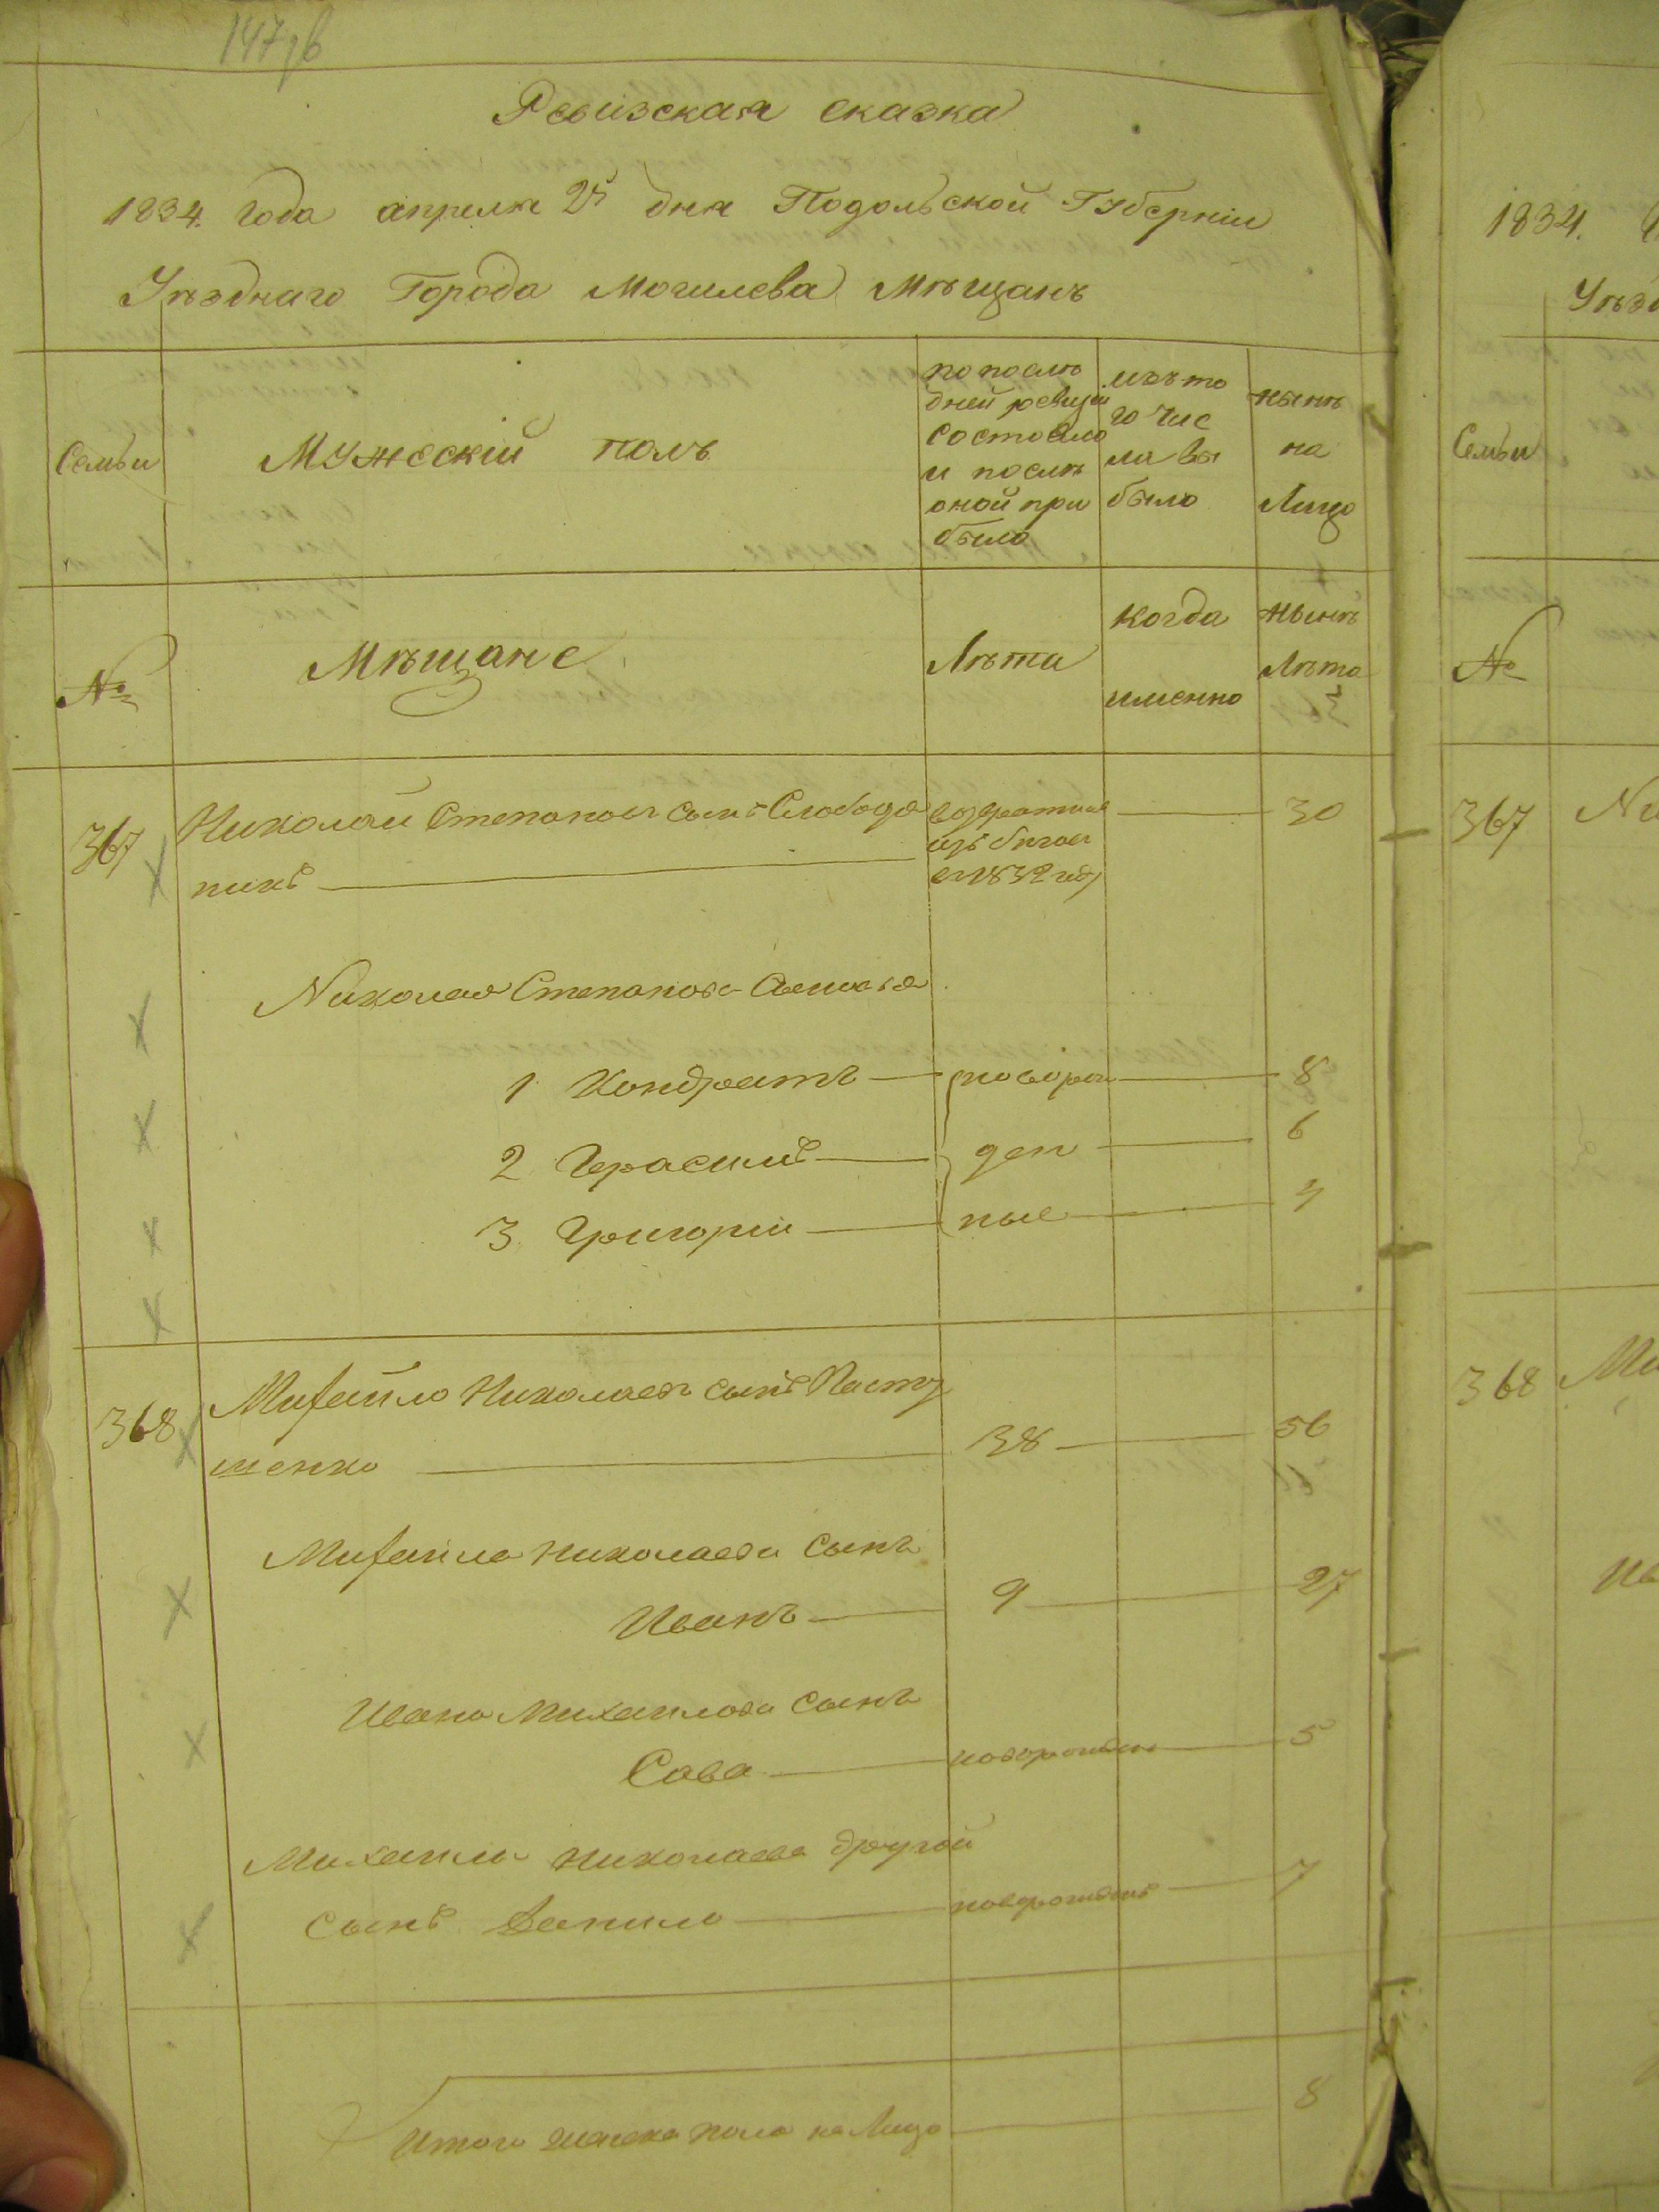 147об
Ревизская сказка
1834. года апреля 25 дня Подольской Губерніи
Уѣзднаго Города Могилева Мѣщанъ
Семьи
Мужескій полъ
по послѣ
дней ревизіи
состояло
и послѣ
оной при
было
изъ то
го чис
ла вы
было
нынѣ
на
Лицо
№
Мѣщане
Лѣта
когда
именно
нынѣ
Лѣта
367
Николай Степановъ сынъ Слободя
никъ
возвратился
изъ бѣговъ
въ 1832 году
30
Николая Степанова Сыновья
1 Кондратъ
новорож
8
2 Герасимъ
ден
6
3 Григорій
ные
4
368
Михайло Николаевъ сынъ Пасту
шенко
38
56
Михаила Николаева сынъ
Иванъ
9
27
Ивана Михаилова сынъ
Сава
новорожденъ
5
Михаила Николаева другой
сынъ Данило
новорожденъ
7
Итого мужеска пола на Лицо
8
1834.
Уѣзд
Семьи
№
367
Ни
368
Ми
Ив